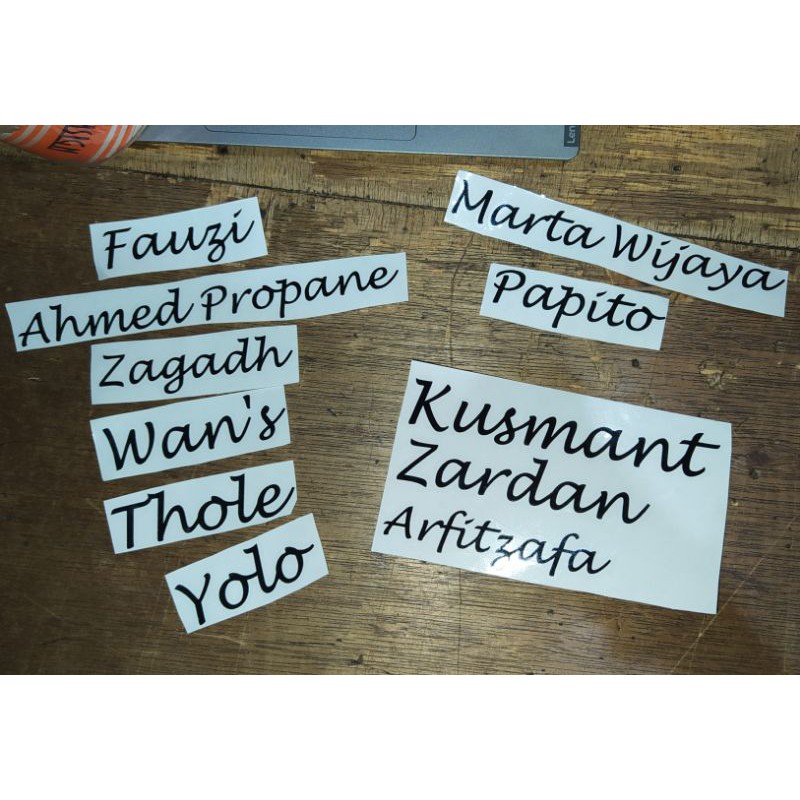 Fauzi
Ahmed Propane
Zagadh
Wan's
Thole
Yolo
Marta Wijaya
Papito
Kusmant
Zardan
Arfitzafa